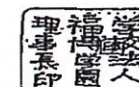 学校法人
福田学園
理事長印